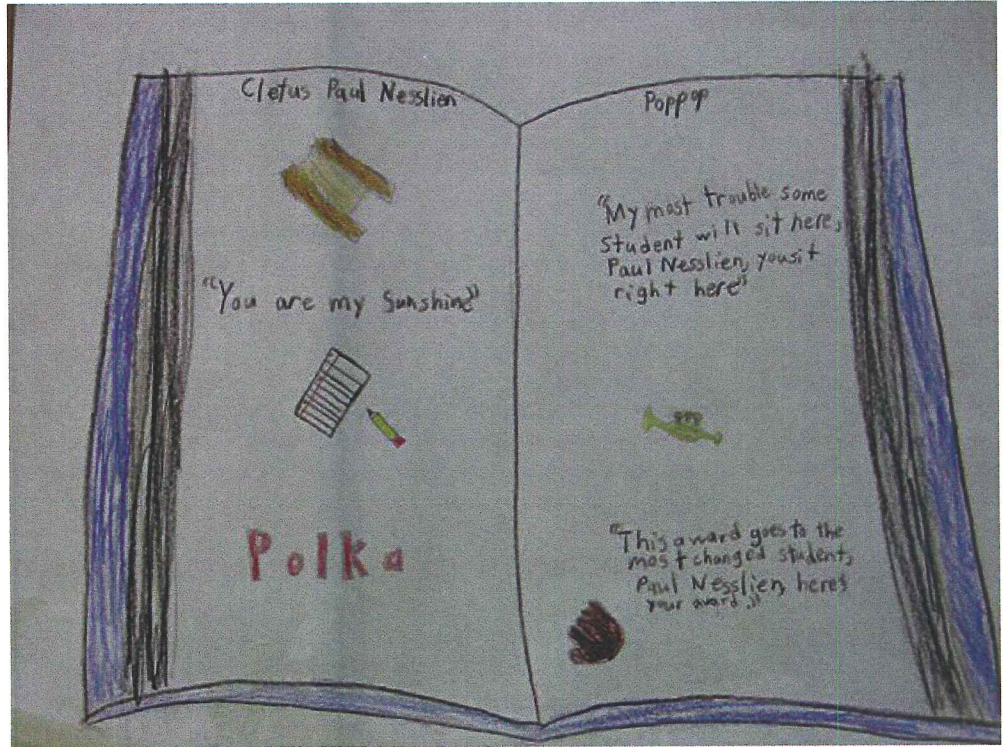 Cletus Paul Nesslien
"You are my Sunshine"
Polka
Poppop
"My most trouble some
student will sit here,
Paul Nesslien, you sit
right here"
"This award goes to the
most changed student,
Paul Nesslien, here's
your award."